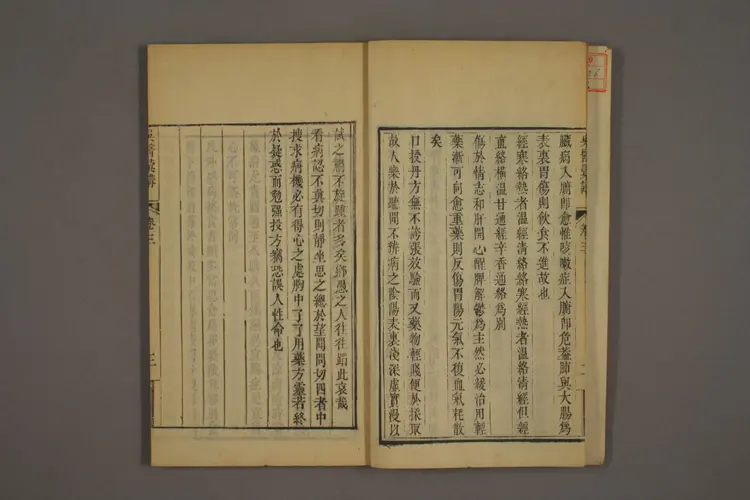 臟病入腑卽愈惟咳嗽症入腑卽危蓋肺與大腸爲
表裏胃傷則飲食不進故也
經寒絡熱者溫經清絡絡寒經熱者溫絡清經但經
直絡橫溫甘通經辛香通絡爲別
傷於情志和肝開心醒脾解鬱爲主然必緩治用輕
藥漸可向愈重藥則反傷胃陽元氣不復血氣耗散
矣
口授丹方無不誇張效驗而又藥物輕賤便於採取
故人樂於聽聞不辨病之陰陽表裏淺深虛實漫以
試之禍不旋踵者多矣鄉愚之人往往蹈此哀哉
看病認不眞切則靜坐思之總於望聞問切四者中
搜求病機必有得心之處胸中了了用藥方靈若終
於疑惑而勉强投方竊恐誤人性命也
卷三
三